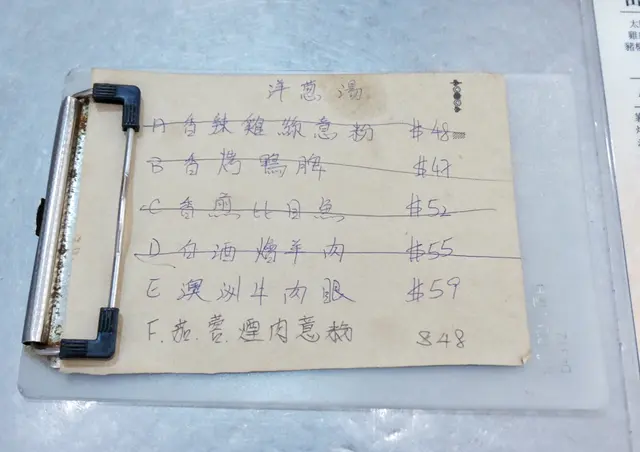 洋葱湯
A 香辣雞絲意粉 $48
B 香烤鴨脾 $47
C 香煎比目魚 $52
D 白酒燴羊肉 $55
E 澳洲牛肉眼 $59
F. 茄. 蓉. 煙肉意粉 $48